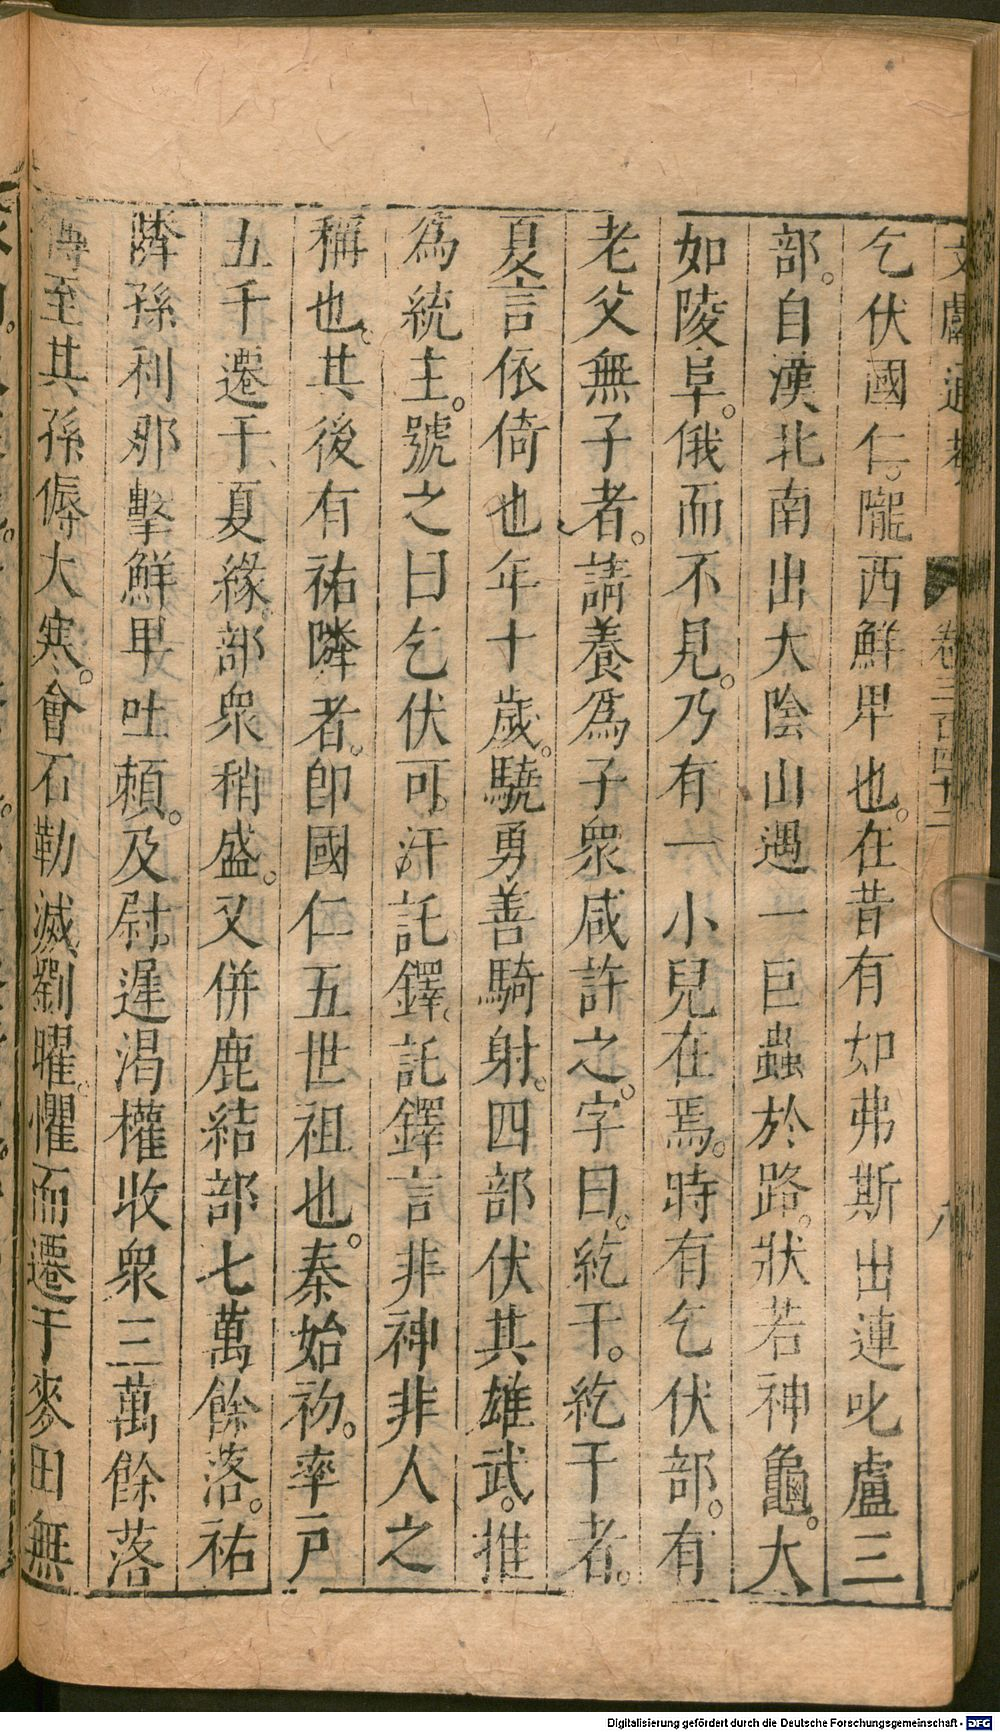 文獻通考 卷三百四十二 八
乞伏國仁。隴西鮮卑也。在昔有如弗斯出連叱盧三
部。自漠北南出大陰山遇一巨蟲於路。狀若神龜。大
如陵阜。俄而不見。乃有一小兒在焉。時有乞伏部。有
老父無子者。請養爲子衆咸許之。字曰。紇干。紇干者。
夏言依倚也年十歲。驍勇善騎射。四部伏其雄武。推
爲統主。號之曰乞伏可。汗託鐸。託鐸言非神非人之
稱也。其後有祐隣者。卽國仁五世祖也。泰始初。率戶
五千遷于夏緣。部衆稍盛。又併鹿結部七萬餘落。祐
隣孫利那擊鮮卑吐賴。及尉。遲渴權收衆三萬餘落
傳至其孫傉大寒。會石勒滅劉曜。懼而遷于麥田無
Digitalisierung gefördert durch die Deutsche Forschungsgemeinschaft - DFG